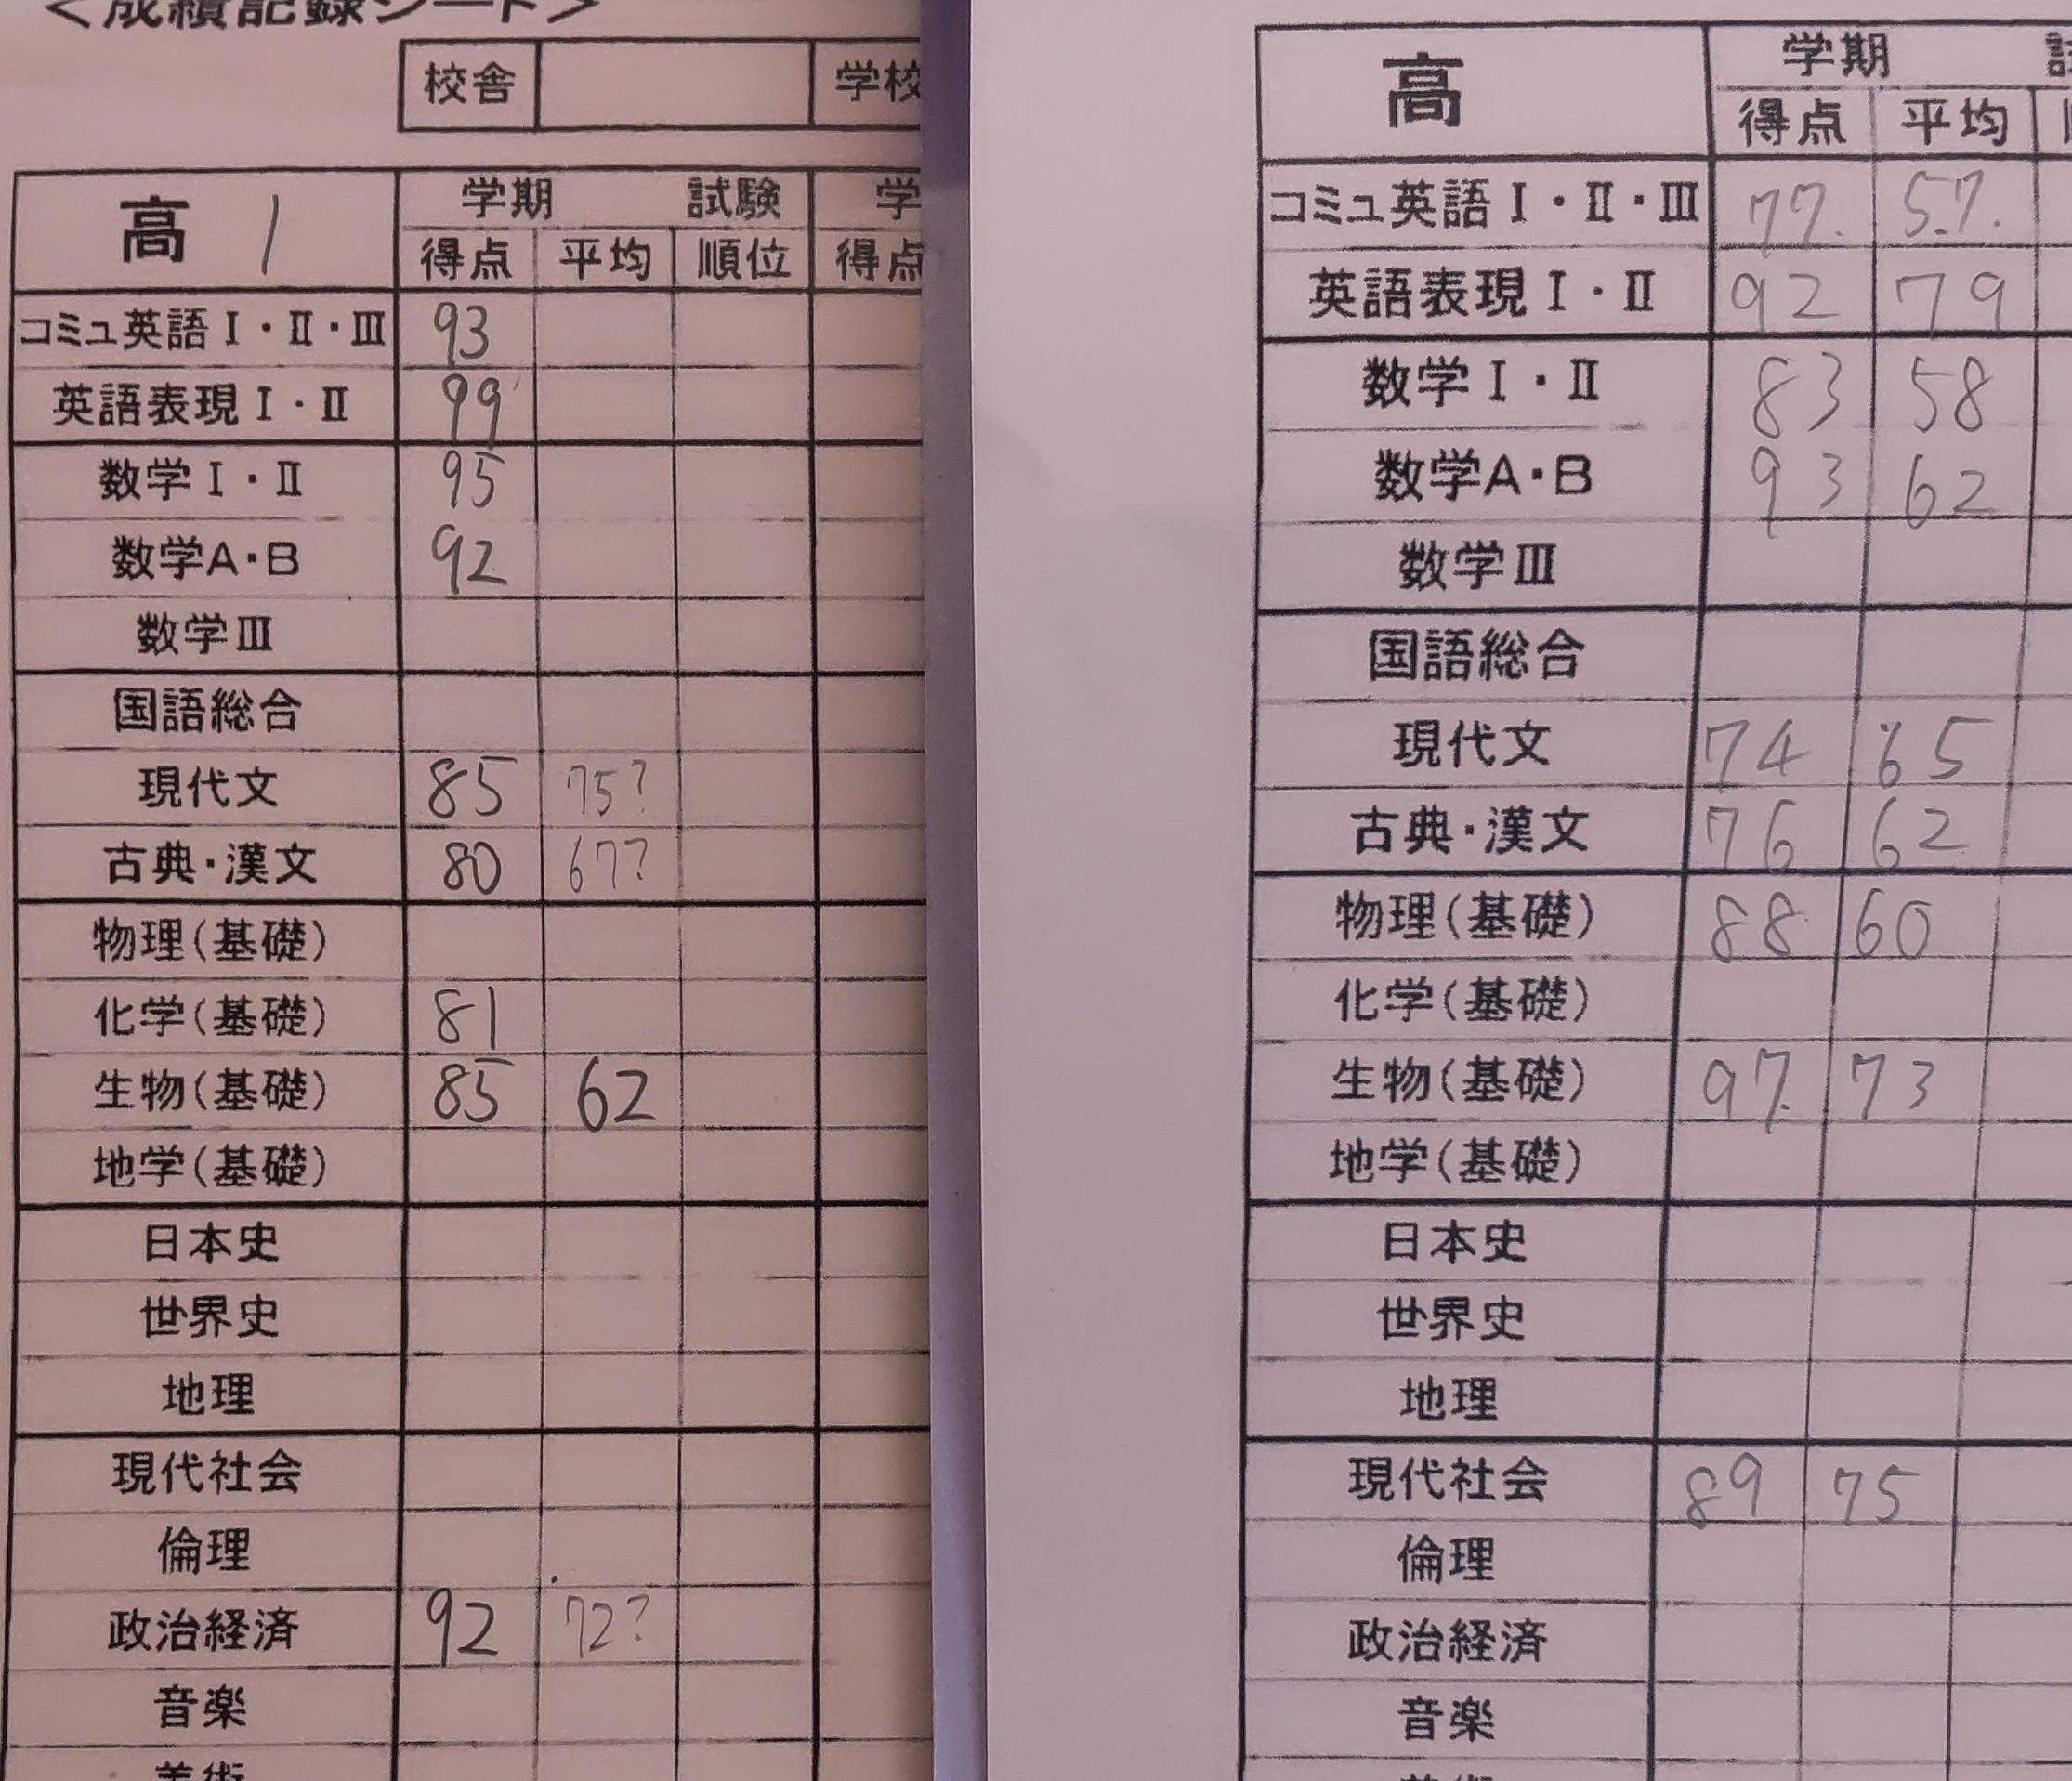 <成績記録シート>
校舎 学校
高 1 学期 試験 学
得点 平均 順位 得点
コミュ英語Ⅰ・Ⅱ・Ⅲ 93
英語表現Ⅰ・Ⅱ 99
数学Ⅰ・Ⅱ 95
数学A・B 92
数学Ⅲ
国語総合
現代文 85 75?
古典・漢文 80 67?
物理(基礎)
化学(基礎) 81
生物(基礎) 85 62
地学(基礎)
日本史
世界史
地理
現代社会
倫理
政治経済 92 72?
音楽
美術
高 学期
得点 平均
コミュ英語Ⅰ・Ⅱ・Ⅲ 77. 57.
英語表現Ⅰ・Ⅱ 92 79
数学Ⅰ・Ⅱ 83 58
数学A・B 93 62
数学Ⅲ
国語総合
現代文 74 65
古典・漢文 76 62
物理(基礎) 88 60
化学(基礎)
生物(基礎) 97. 73
地学(基礎)
日本史
世界史
地理
現代社会 89 75
倫理
政治経済
音楽
美術